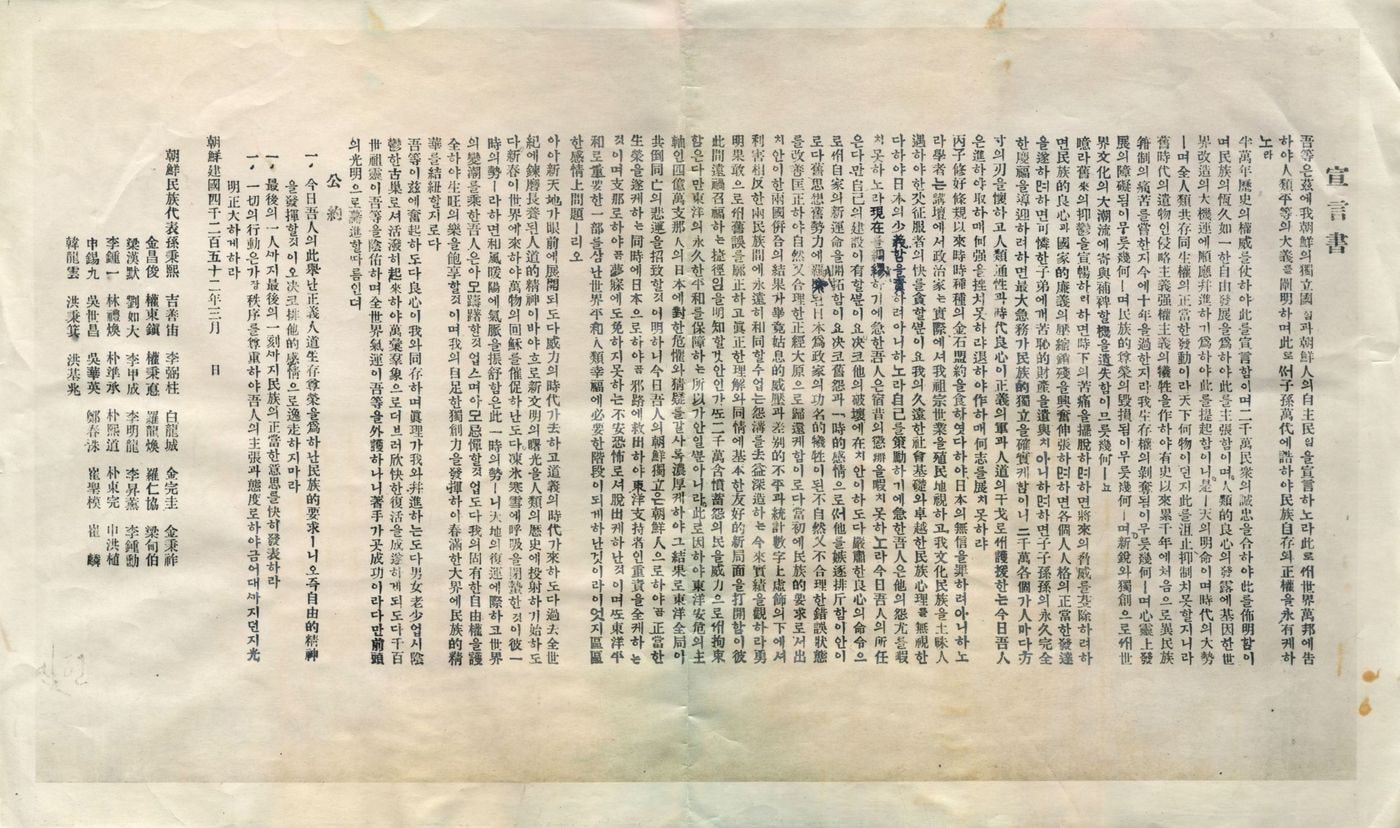 宣言書
吾等은玆에我朝鮮의獨立國임과朝鮮人의自主民임을宣言하노라此로써世界萬邦에告
하야人類平等의大義를克明하며此로써子孫萬代에誥하야民族自存의正權을永有케하
노라
半萬年歷史의權威를仗하야此를宣言함이며二千萬民衆의誠忠을合하야此를佈明함이
며民族의恒久如一한自由發展을爲하야此를主張함이며人類的良心의發露에基因한世
界改造의大機運에順應幷進하기爲하야此를提起함이니是ㅣ天의明命이며時代의大勢
ㅣ며全人類共存同生權의正當한發動이라天下何物이던지此를沮止抑制치못할지니라
舊時代의遺物인侵略主義强權主義의犧牲을作하야有史以來累千年에처음으로異民族
箝制의痛苦를嘗한지今에十年을過한지라我生存權의剝喪됨이무릇幾何ㅣ며心靈上發
展의障礙됨이무릇幾何ㅣ며民族的尊榮의毁損됨이무릇幾何ㅣ며新銳와獨創으로써世
界文化의大潮流에寄與補裨할機緣을遺失함이무릇幾何ㅣ뇨
噫라舊來의抑鬱을宣暢하려하면時下의苦痛을擺脫하려하면將來의脅威를芟除하려하
면民族的良心과國家的廉義의壓縮銷殘을興奮伸張하려하면各個人格의正當한發達
을遂하려하면可憐한子弟에게苦恥的財產을遺與치아니하려하면子子孫孫의永久完全
한慶福을導迎하려하면最大急務가民族的獨立을確實케함이니二千萬各個가人마다方
寸의刃을懷하고人類通性과時代良心이正義의軍과人道의干戈로써護援하는今日吾人
은進하야取하매何强을挫치못하랴退하야作하매何志를展치못하랴
丙子修好條規以來時時種種의金石盟約을食하얏다하야日本의無信을罪하려아니하노
라學者는講壇에서政治家는實際에서我祖宗世業을植民地視하고我文化民族을土昧人
遇하야한갓征服者의快를貪할뿐이오我의久遠한社會基礎와卓犖한民族心理를無視한
다하야日本의少義함을責하려아니하노라自己를策勵하기에急한吾人은他의怨尤를暇
치못하노라現在를綢繆하기에急한吾人은宿昔의懲辦을暇치못하노라今日吾人의所任
은다만自己의建設이有할뿐이오決코他의破壞에在치안이하도다嚴肅한良心의命令으
로써自家의新運命을開拓함이오決코舊怨과一時的感情으로써他를嫉逐排斥함이안이
로다舊思想舊勢力에羈縻된日本爲政家의功名的犧牲이된不自然又不合理한錯誤狀態
를改善匡正하야自然又合理한正經大原으로歸還케함이로다當初에民族的要求로서出
치안이한兩國倂合의結果가畢竟姑息的威壓과差別的不平과統計數字上虛飾의下에서
利害相反한兩民族間에永遠히和同할수업는怨溝를去益深造하는今來實績을觀하라勇
明果敢으로써舊誤를廓正하고眞正한理解와同情에基本한友好的新局面을打開함이彼
此間遠禍召福하는捷徑임을明知할것안인가또二千萬含憤蓄怨의民을威力으로써拘束
함은다만東洋의永久한平和를保障하는所以가안일뿐아니라此로因하야東洋安危의主
軸인四億萬支那人의日本에對한危懼와猜疑를갈사록濃厚케하야그結果로東洋全局이
共倒同亡의悲運을招致할것이明하니今日吾人의朝鮮獨立은朝鮮人으로하야금正當한
生榮을遂케하는同時에日本으로하야금邪路에서出하야東洋支持者인重責을全케하는
것이며支那로하야금夢寐에도免하지못하는不安恐怖로서脫出케하난것이며또東洋平
和로重要한一部를삼난世界平和人類幸福에必要한階段이되게하난것이라이엇지區區
한感情上問題ㅣ리오
아아新天地가眼前에展開되도다威力의時代가去하고道義의時代가來하도다過去全世
紀에鍊磨長養된人道的精神이바야흐로新文明의曙光을人類의歷史에投射하기始하도
다新春이世界에來하야萬物의回穌를催促하난도다凍氷寒雪에呼吸을閉蟄한것이彼一
時의勢ㅣ라하면和風暖陽에氣脈을振舒함은此一時의勢ㅣ니天地의復運에際하고世界
의變潮를乘한吾人은아모躊躇할것업스며아모忌憚할것업도다我의固有한自由權을護
全하야生旺의樂을飽享할것이며我의自足한獨創力을發揮하야春滿한大界에民族的精
華를結紐할지로다
吾等이玆에奮起하도다良心이我와同存하며眞理가我와幷進하는도다男女老少업시陰
鬱한古巢로서活潑히起來하야萬彙群象으로더브러欣快한復活을成遂하게되도다千百
世祖靈이吾等을陰佑하며全世界氣運이吾等을外護하나니着手가곳成功이라다만前頭
의光明으로驀進할따름인뎌
公約
一、今日吾人의此擧난正義人道生存尊榮을爲하난民族的要求ㅣ니오즉自由的精神
을發揮할것이오决코排他的感情으로逸走하지마라
一、最後의一人까지最後의一刻까지民族의正當한意思를快히發表하라
一、一切의行動은가장秩序를尊重하야吾人의主張과態度로하야금어대까지던지光
明正大하게하라
朝鮮建國四千二百五十二年三月 日
朝鮮民族代表孫秉熙 吉善宙 李弼柱 白龍城 金完圭 金秉祚
金昌俊 權東鎭 權秉悳 羅龍煥 羅仁協 梁甸伯
梁漢默 劉如大 李甲成 李明龍 李昇薰 李鍾勳
李鍾一 林禮煥 朴準承 朴熙道 朴東完 申洪植
申錫九 吳世昌 吳華英 鄭春洙 崔聖模 崔麟
韓龍雲 洪秉箕 洪基兆